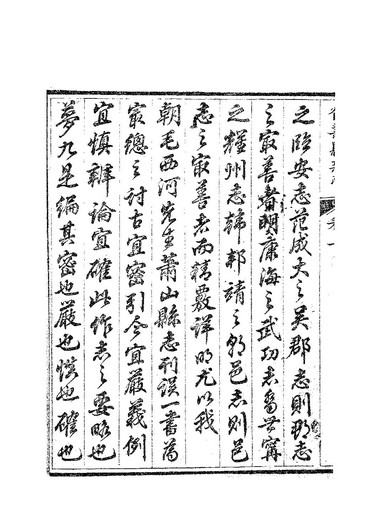 之臨安志范成大之吳郡志則郡志
之㝡善者明康海之武功志喬世寧
之耀州志韓邦靖之朝邑志則邑
志之㝡善者而精覈詳明尤以我
朝毛西河先生蕭山縣志刊誤一書為
㝡總之討古宜密引今宜嚴義例
宜慎辨論宜確此作志之要略也
夢九是編其密也嚴也慎也確也